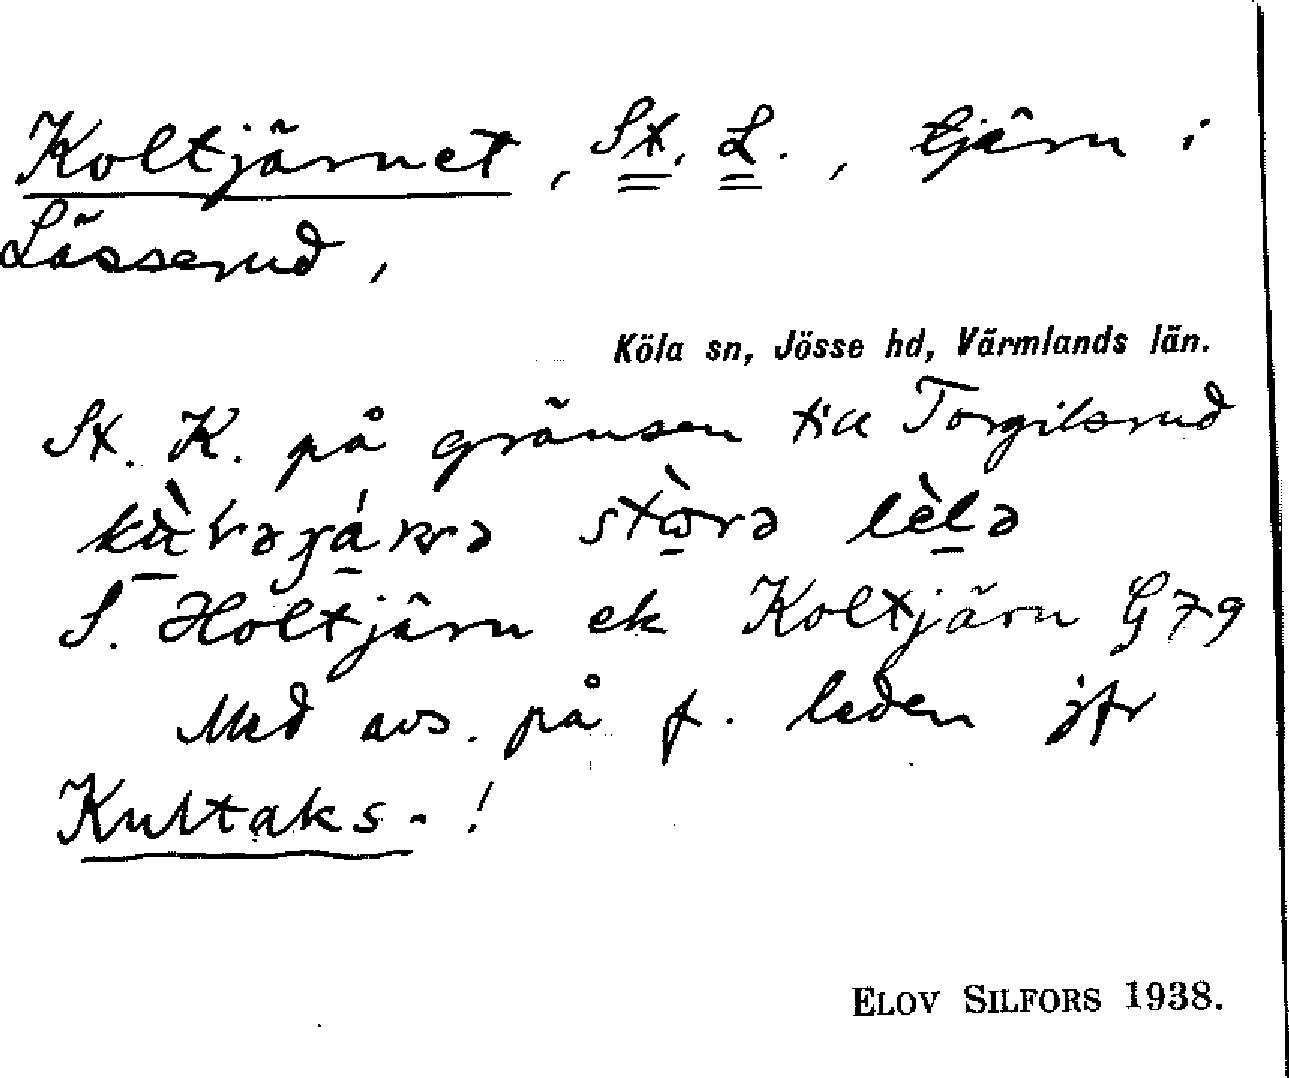 Koltjärnet, St. L., tjärn i
Lässerud,
Köla sn, Jösse hd, Värmlands län.
St. K. på gränsen till Torgilsrud
stòrə lèlə
S. Holtjärn ek Koltjärn G 79
Med avs. på f. leden jfr
Kultaks- !
ELOV SILFORS 1938.